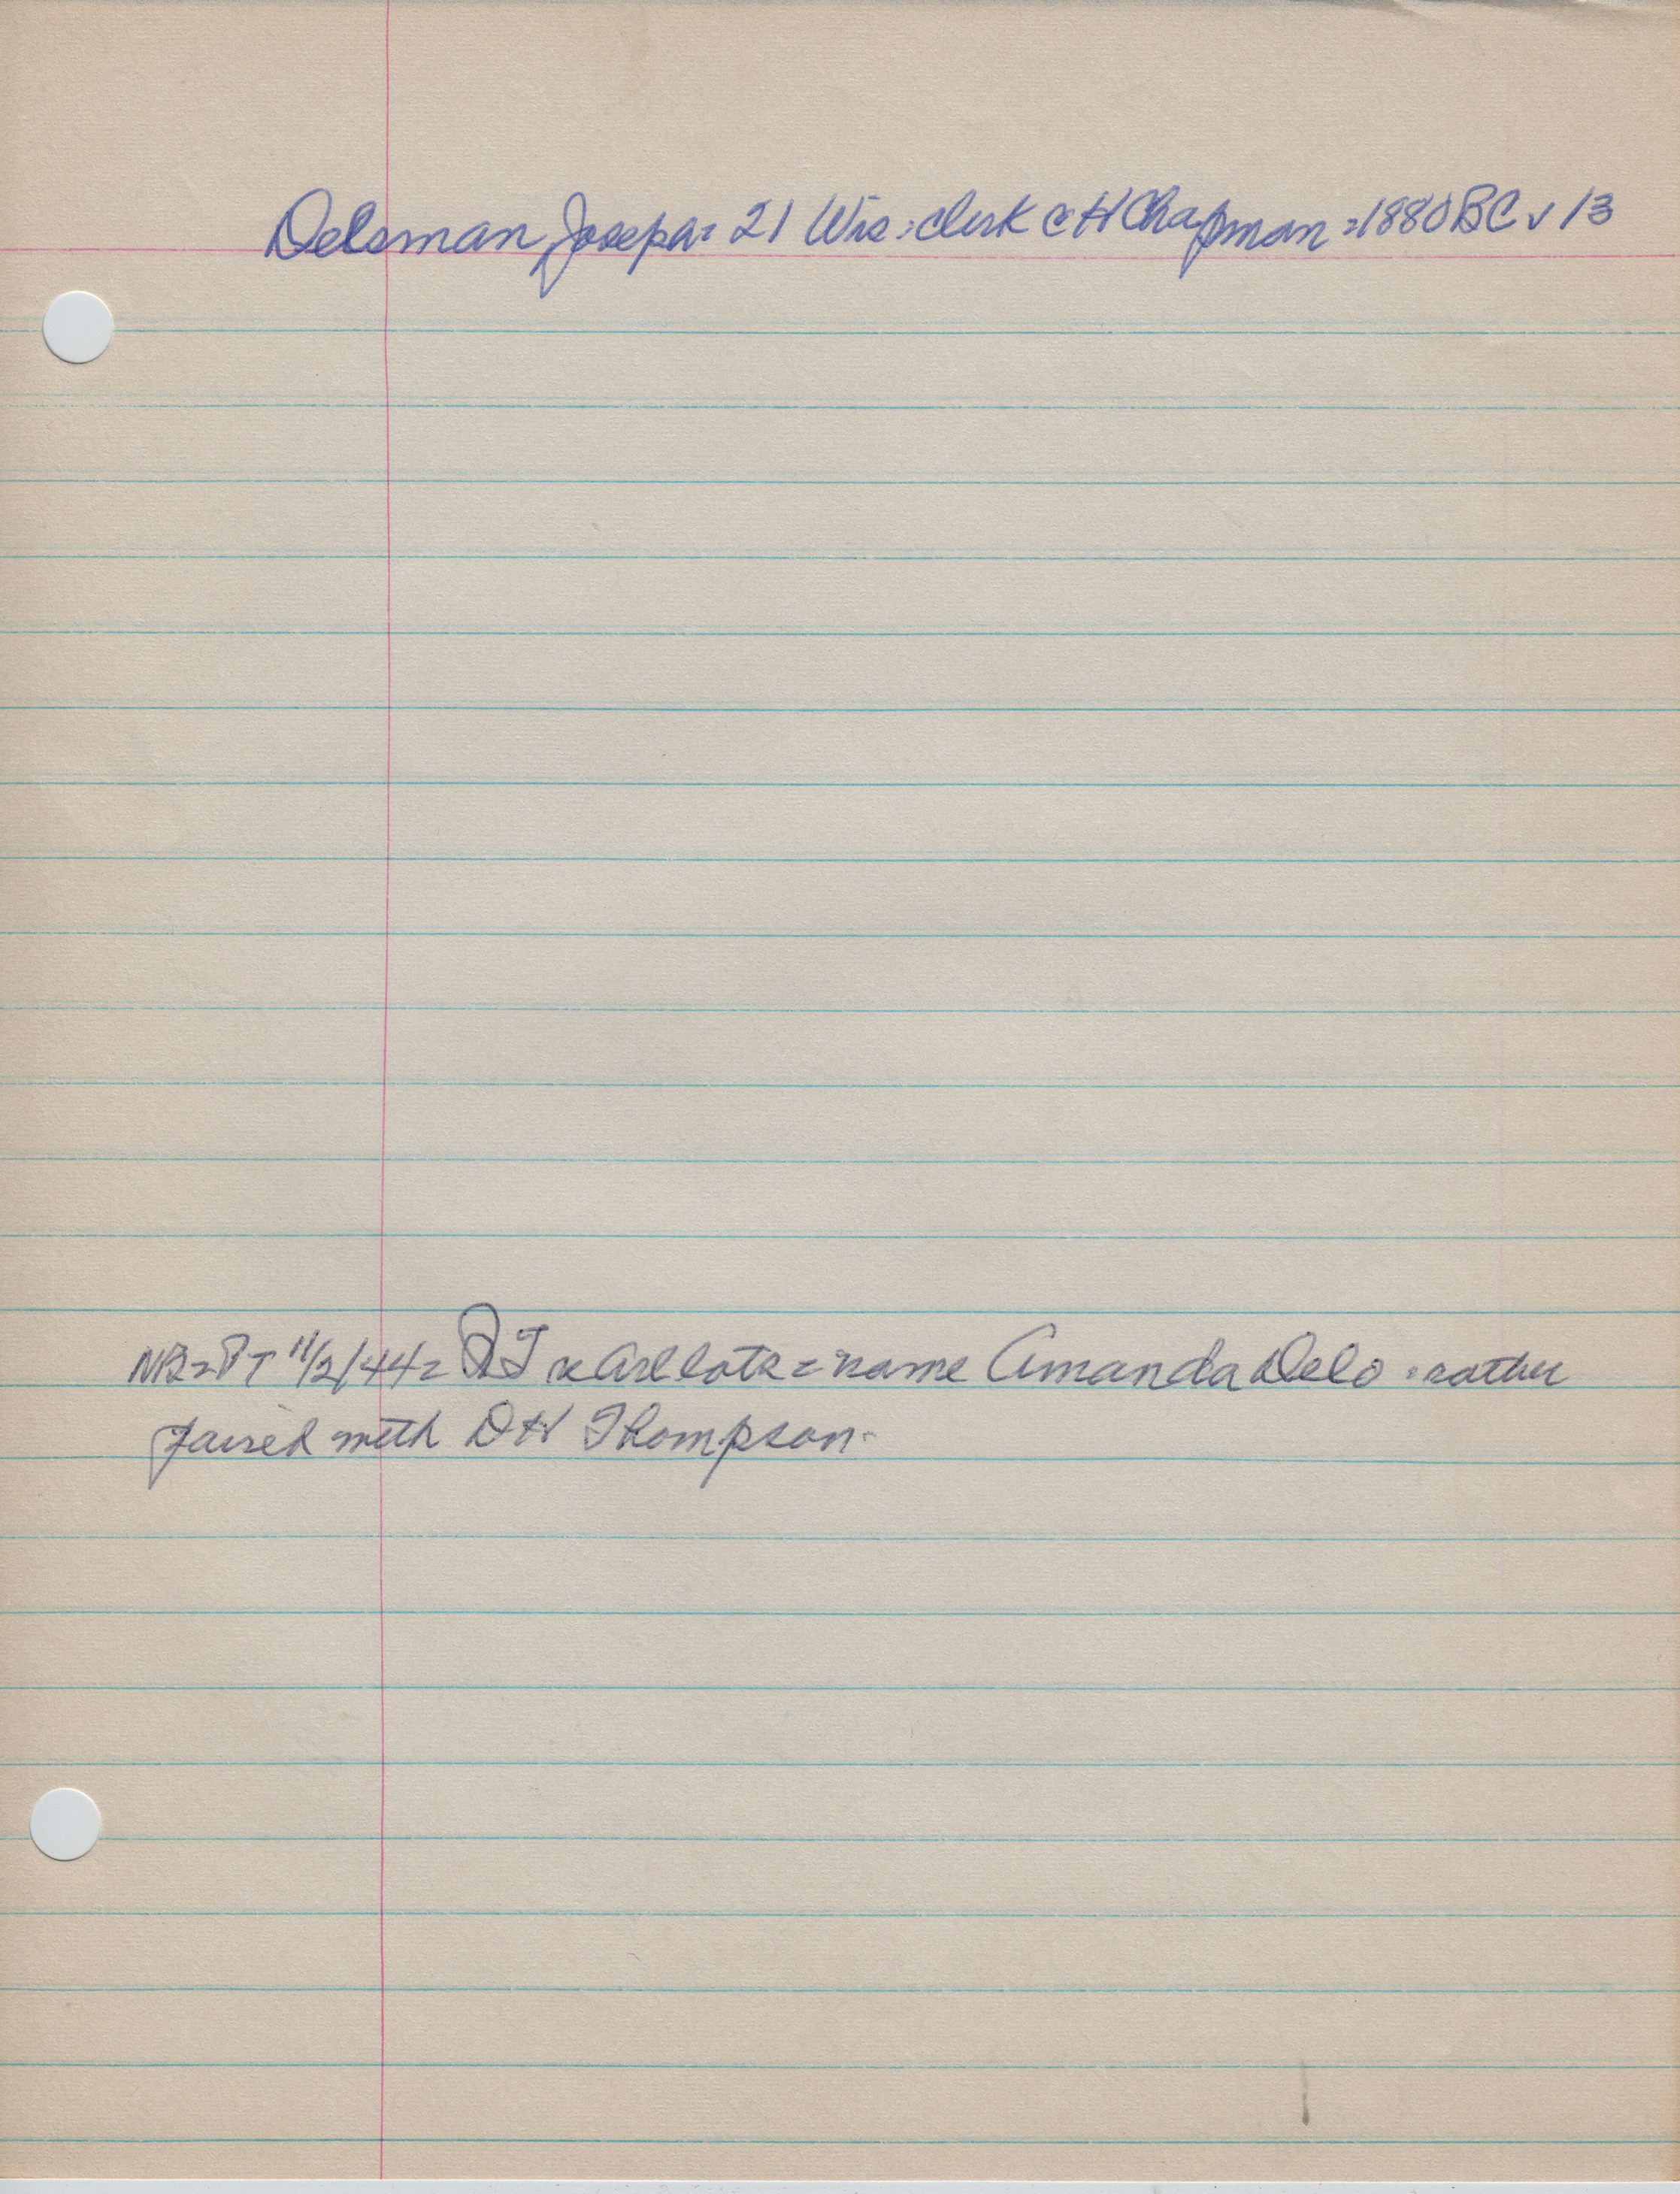 Delsman Joseph = 21 Wis : clerk C H Chapman = 1880 BC v 13
NB = PT 11/2/44 = RJ lots = name Amanda Delo : rather
paired with D H Thompson -